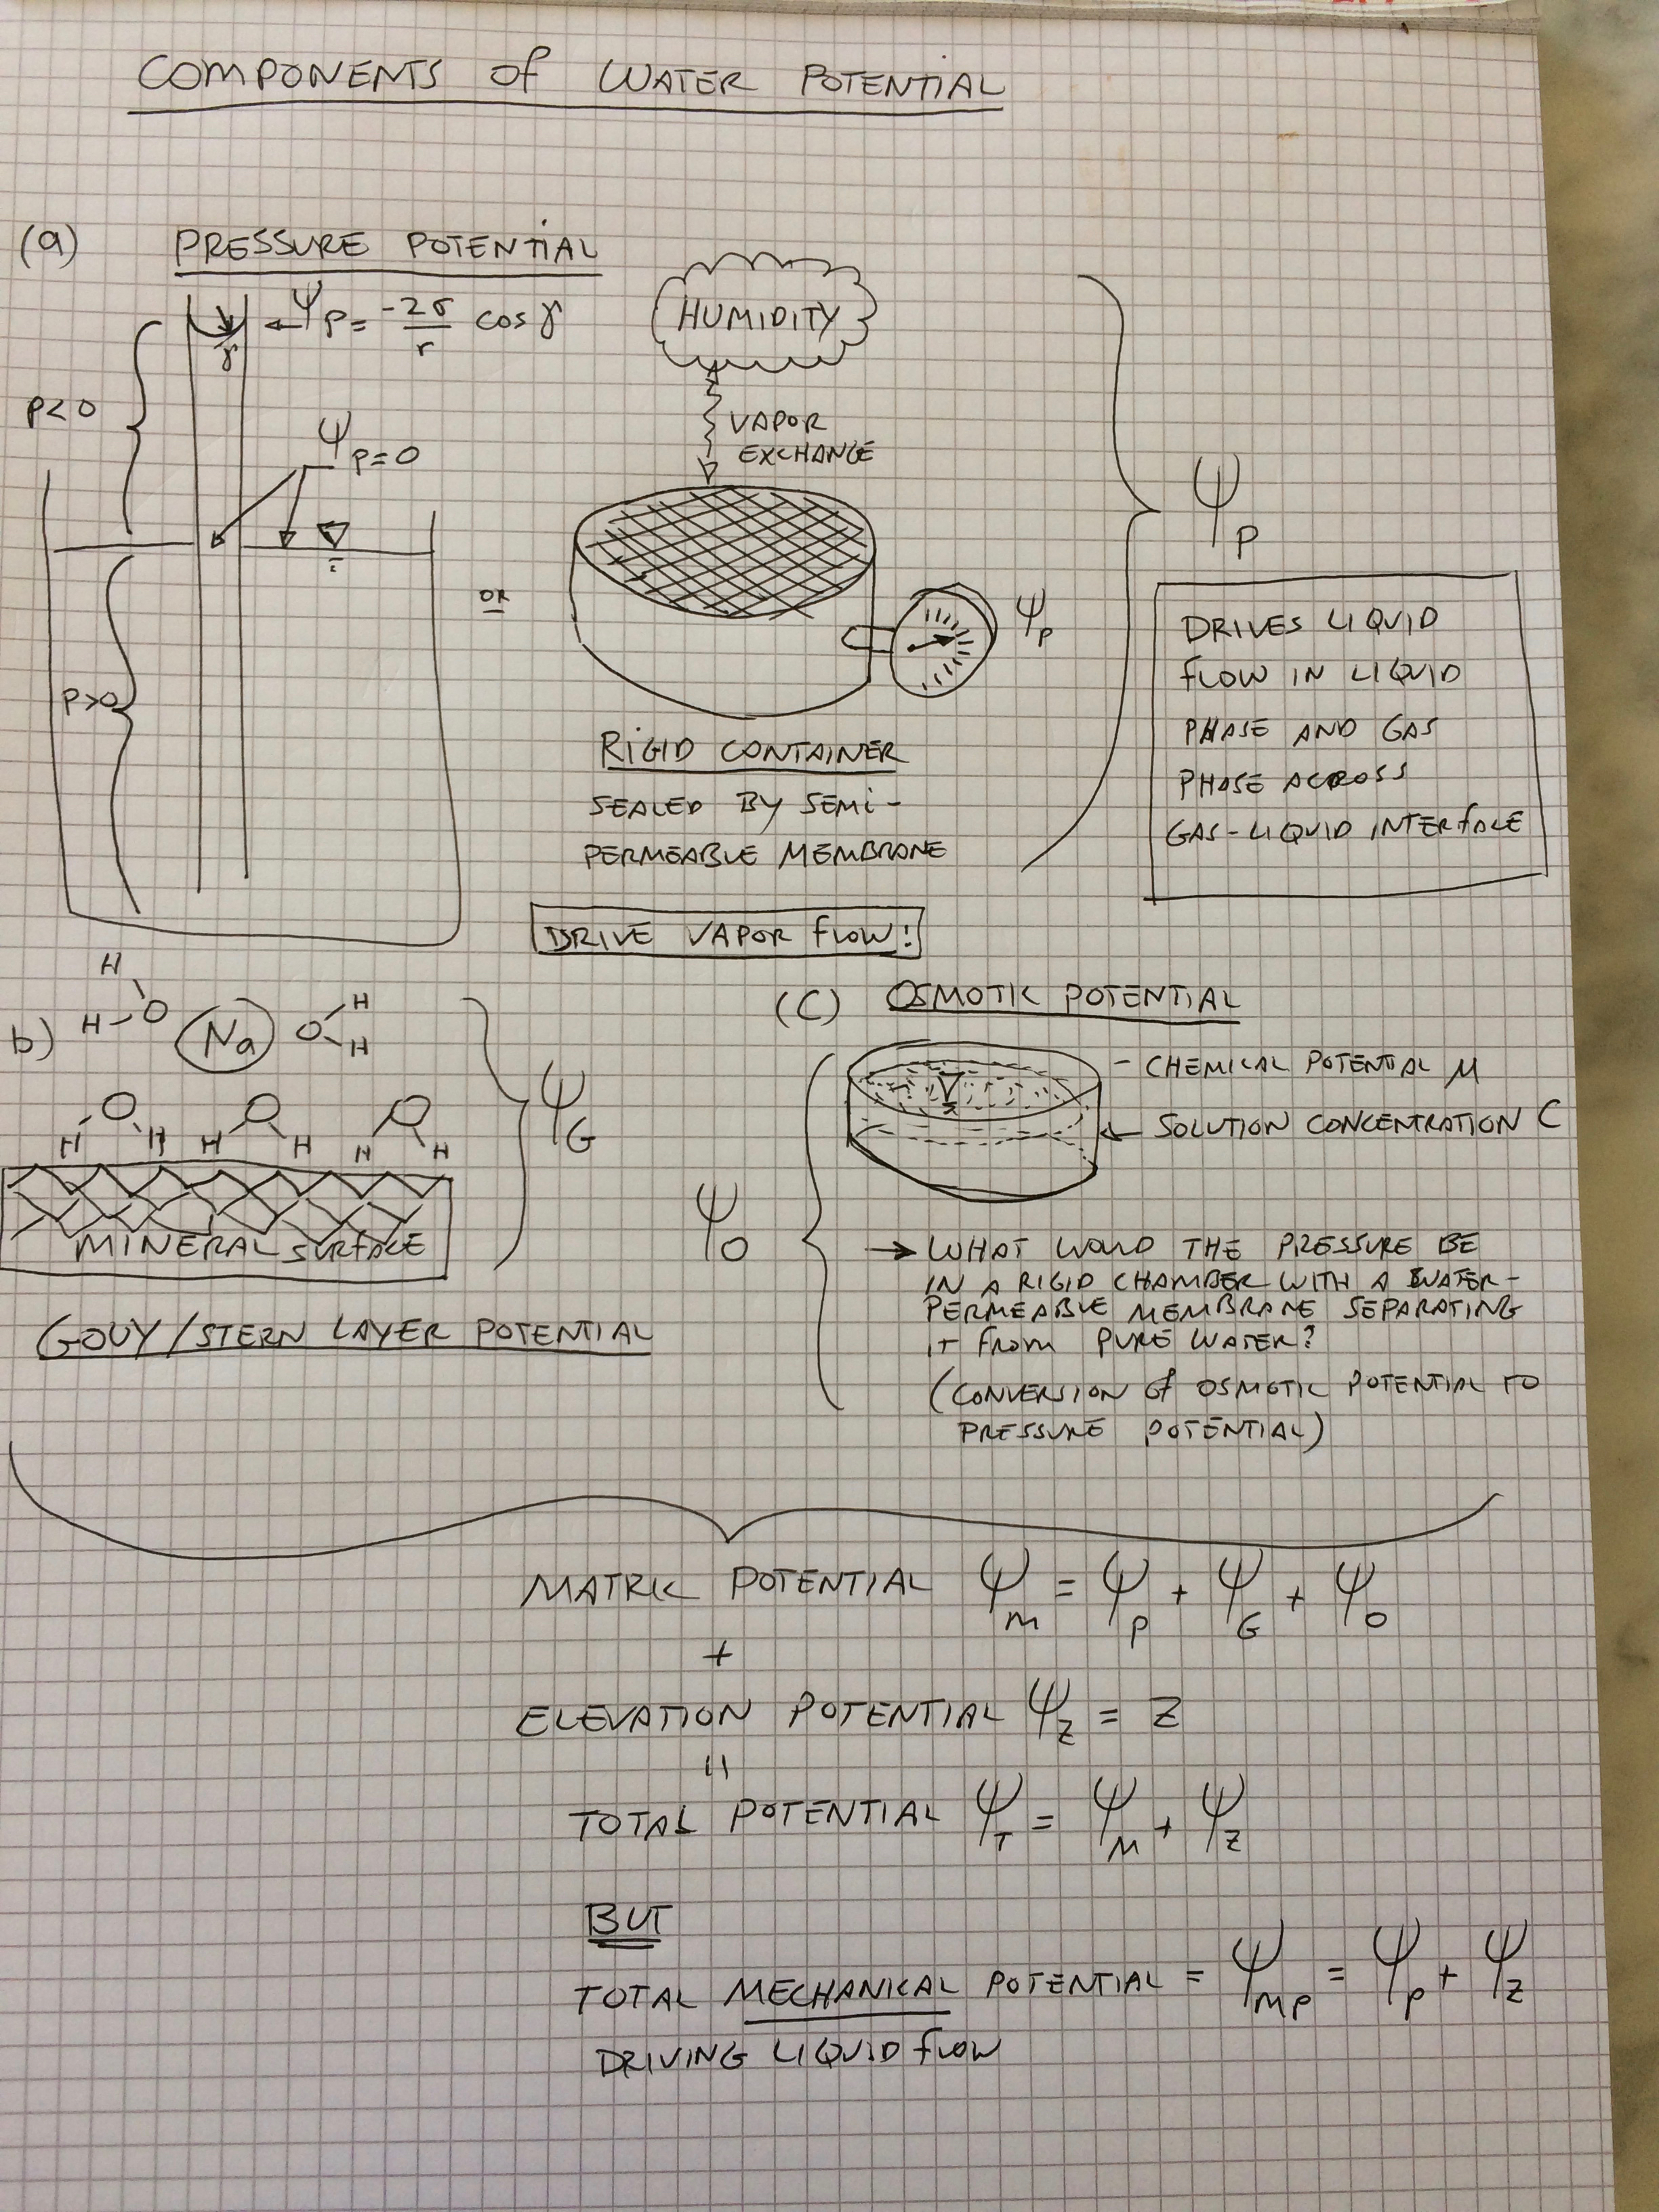 COMPONENTS OF WATER POTENTIAL
(a) PRESSURE POTENTIAL
Ψp = -2σ/r cos γ
γ
P<0
Ψp=0
P>0
HUMIDITY
VAPOR
EXCHANGE
OR
Ψp
RIGID CONTAINER
SEALED BY SEMI-
PERMEABLE MEMBRANE
DRIVE VAPOR FLOW!
Ψp
DRIVES LIQUID
FLOW IN LIQUID
PHASE AND GAS
PHASE ACROSS
GAS-LIQUID INTERFACE
b)
H
H O Na O H
H
O O O
H H H H H H
MINERAL SURFACE
ΨG
GOUY/STERN LAYER POTENTIAL
(C) OSMOTIC POTENTIAL
- CHEMICAL POTENTIAL μ
← SOLUTION CONCENTRATION C
Ψo
→ WHAT WOULD THE PRESSURE BE
IN A RIGID CHAMBER WITH A WATER-
PERMEABLE MEMBRANE SEPARATING
IT FROM PURE WATER?
(CONVERSION OF OSMOTIC POTENTIAL TO
PRESSURE POTENTIAL)
MATRIC POTENTIAL ΨM = ΨP + ΨG + ΨO
+
ELEVATION POTENTIAL Ψz = Z
=
TOTAL POTENTIAL ΨT = ΨM + ΨZ
BUT
TOTAL MECHANICAL POTENTIAL = ΨMP = ΨP + ΨZ
DRIVING LIQUID FLOW